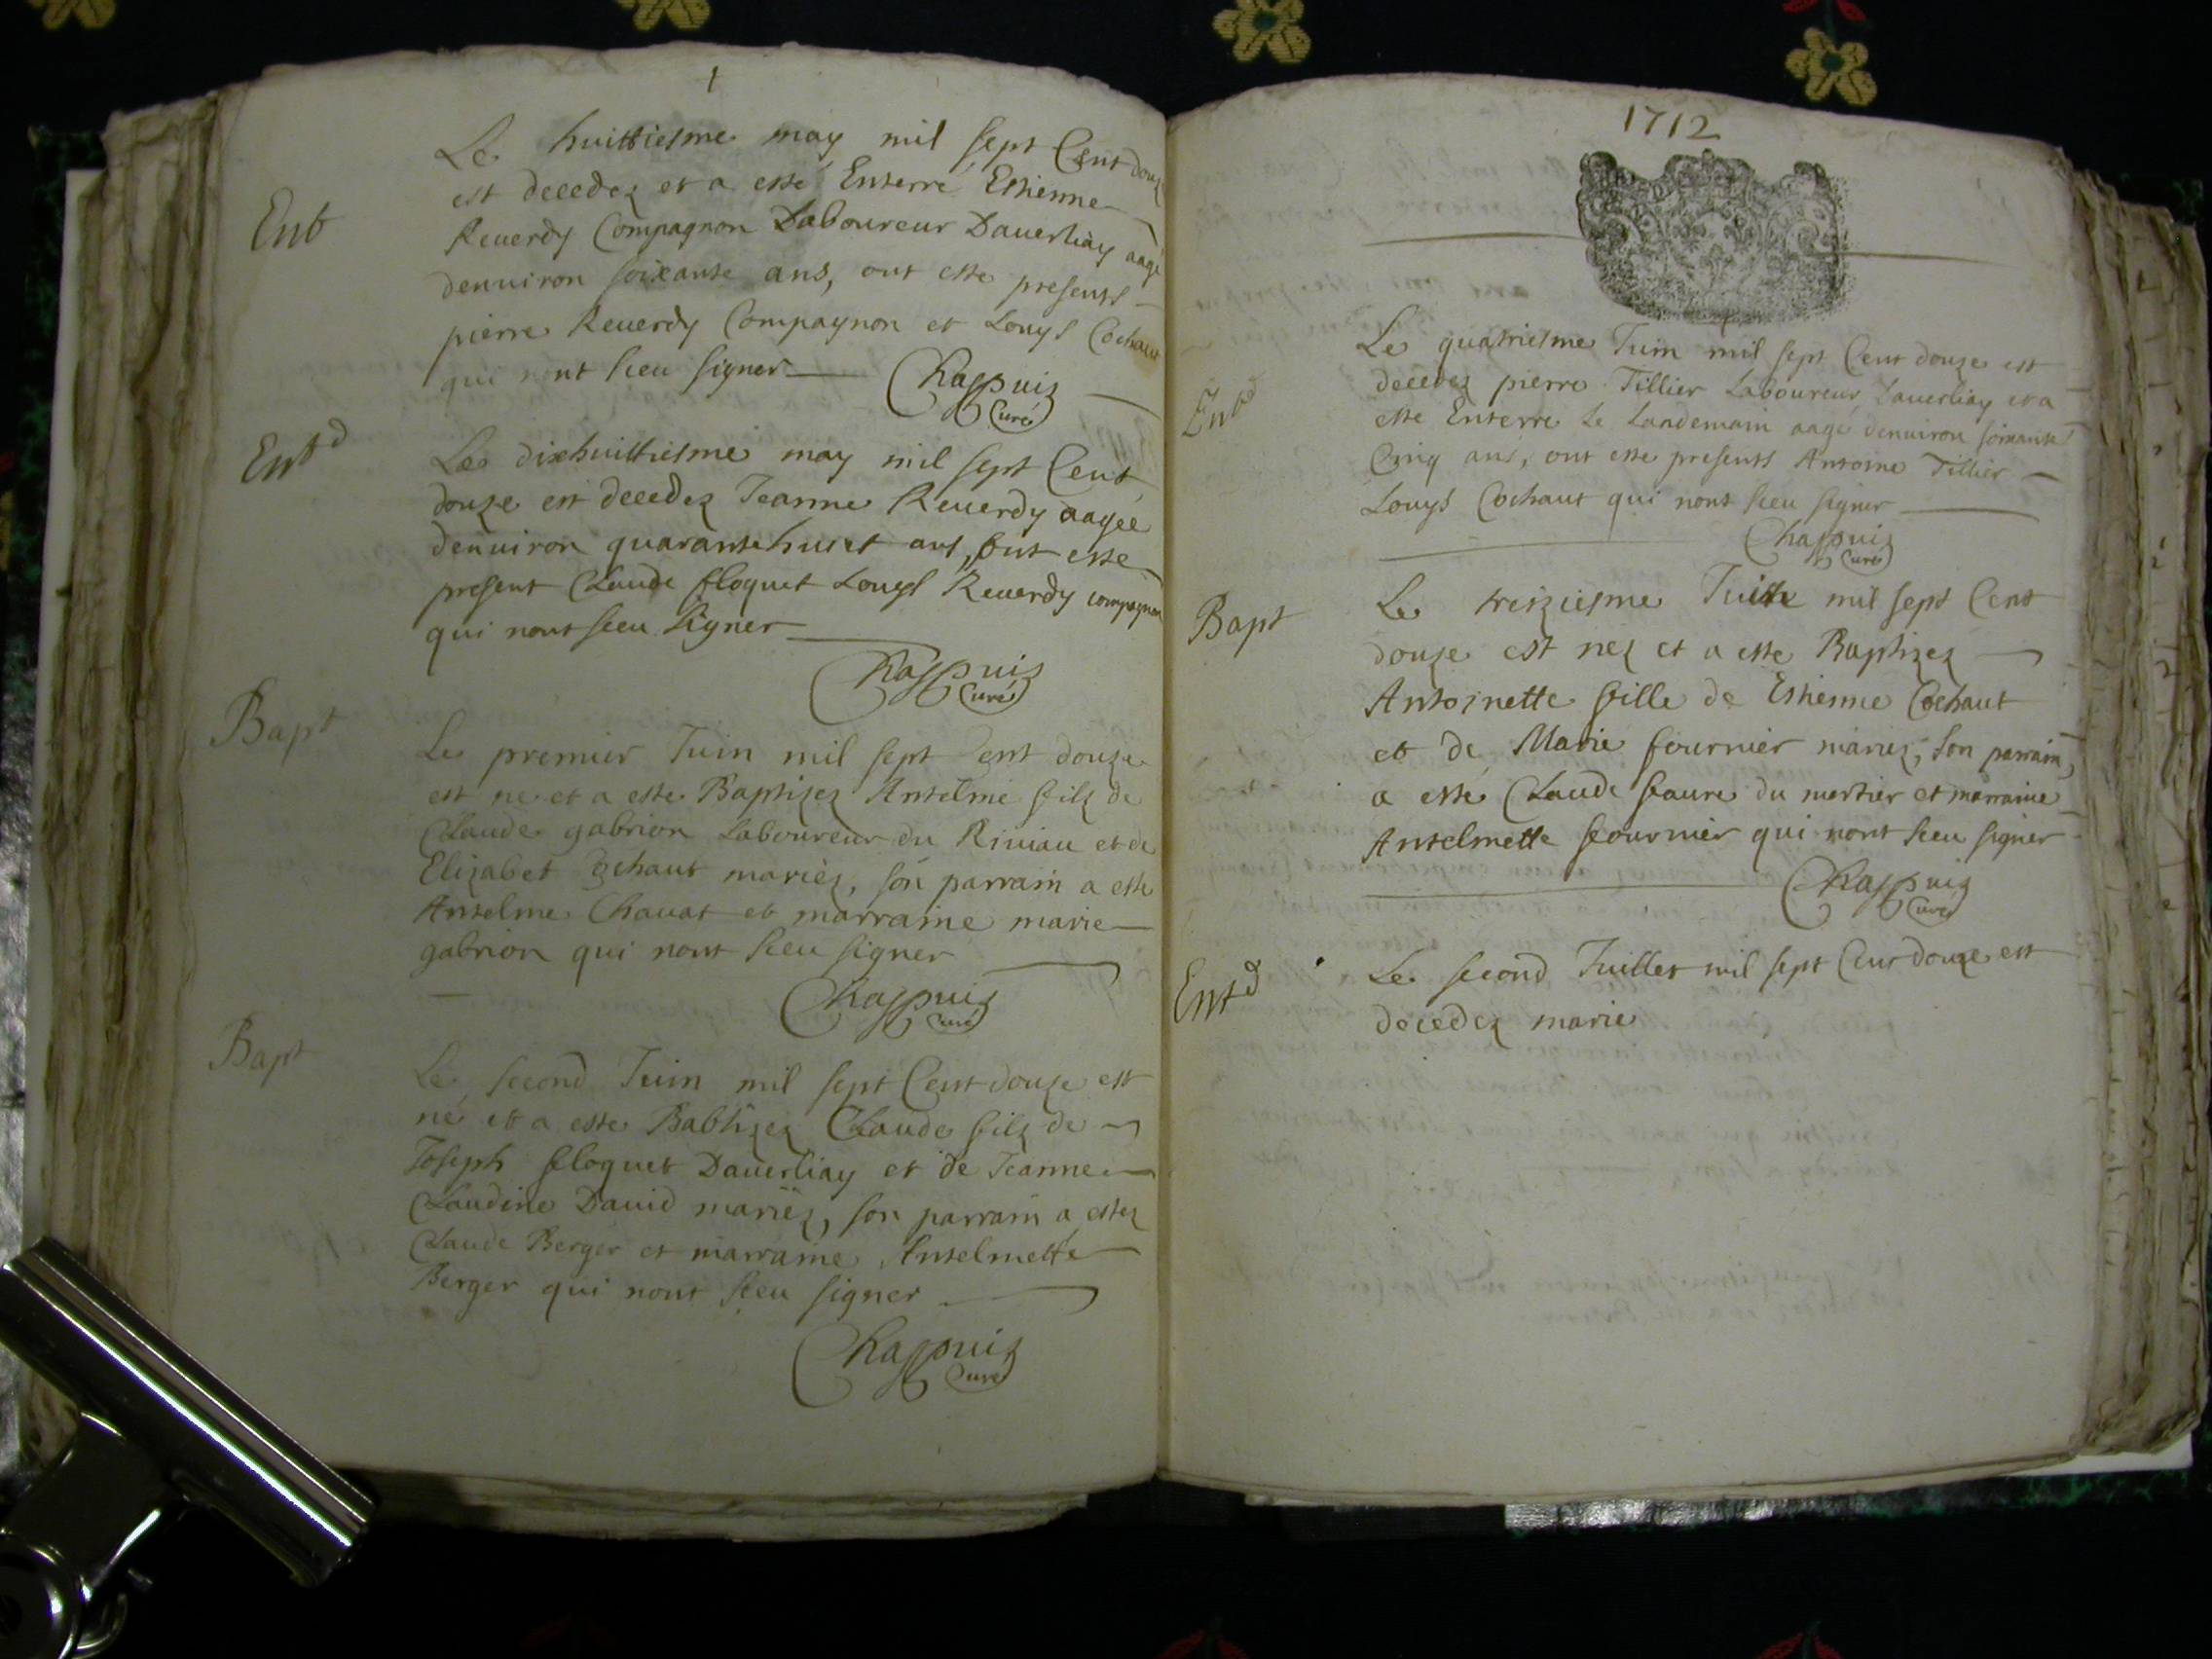 1
Le huittiesme may mil sept Cent douze
Ent
est decedez et a esté Enterré Estienne
Reuerdy Compagnon Laboureur Dauerliay aagé
denuiron soixante ans, ont este presents
pierre Reuerdy Compagnon et Louys Cochaut
qui nont sceu signer
Chappuiz
Curé
Entd
Le dixhuittiesme may mil sept Cent
douze est decedez Jeanne Reuerdy aagée
denuiron quarante huict ans, ont este
present Claude floquet Louys Reuerdy compagnon
qui nont sceu signer
Chappuiz
Curé
Bapt
Le premier Juin mil sept Cent douze
est ne et a este Baptizez Antelme filz de
Claude gabrion Laboureur du Riuiau et de
Elizabet Cochaut mariez, son parrain a este
Antelme Chauat et marraine marie
gabrion qui nont sceu signer
Chappuiz
Curé
Bapt
Le second Juin mil sept Cent douze est
né et a este Babtizez Claude filz de
Joseph floquet Dauerliay et de Jeanne
Claudine Dauid mariez, son parrain a estez
Claude Berger et marraine Antelmette
Berger qui nont sceu signer
Chappuiz
Curé
1712
Le quatriesme Juin mil sept Cent douze est
decedez pierre Tillier Laboureur Dauerliay et a
Entd
este Enterre le Landemain aage denuiron soixante
Cinq ans, ont este presents Antoine Tillier
Louys Cochaut qui nont sceu signer
Chappuiz
Curé
Bapt
Le treiziesme mil sept Cent
douze est nez et a este Baptizez
Antoinette fille de Estienne Cochaut
et de Marie fournier mariez, son parrain
a esté Claude faure du mortier et marraine
Antelmette fournier qui nont sceu signer
Chappuiz
Curé
Entd
Le second Juillet mil sept Cent douze est
decedez marie